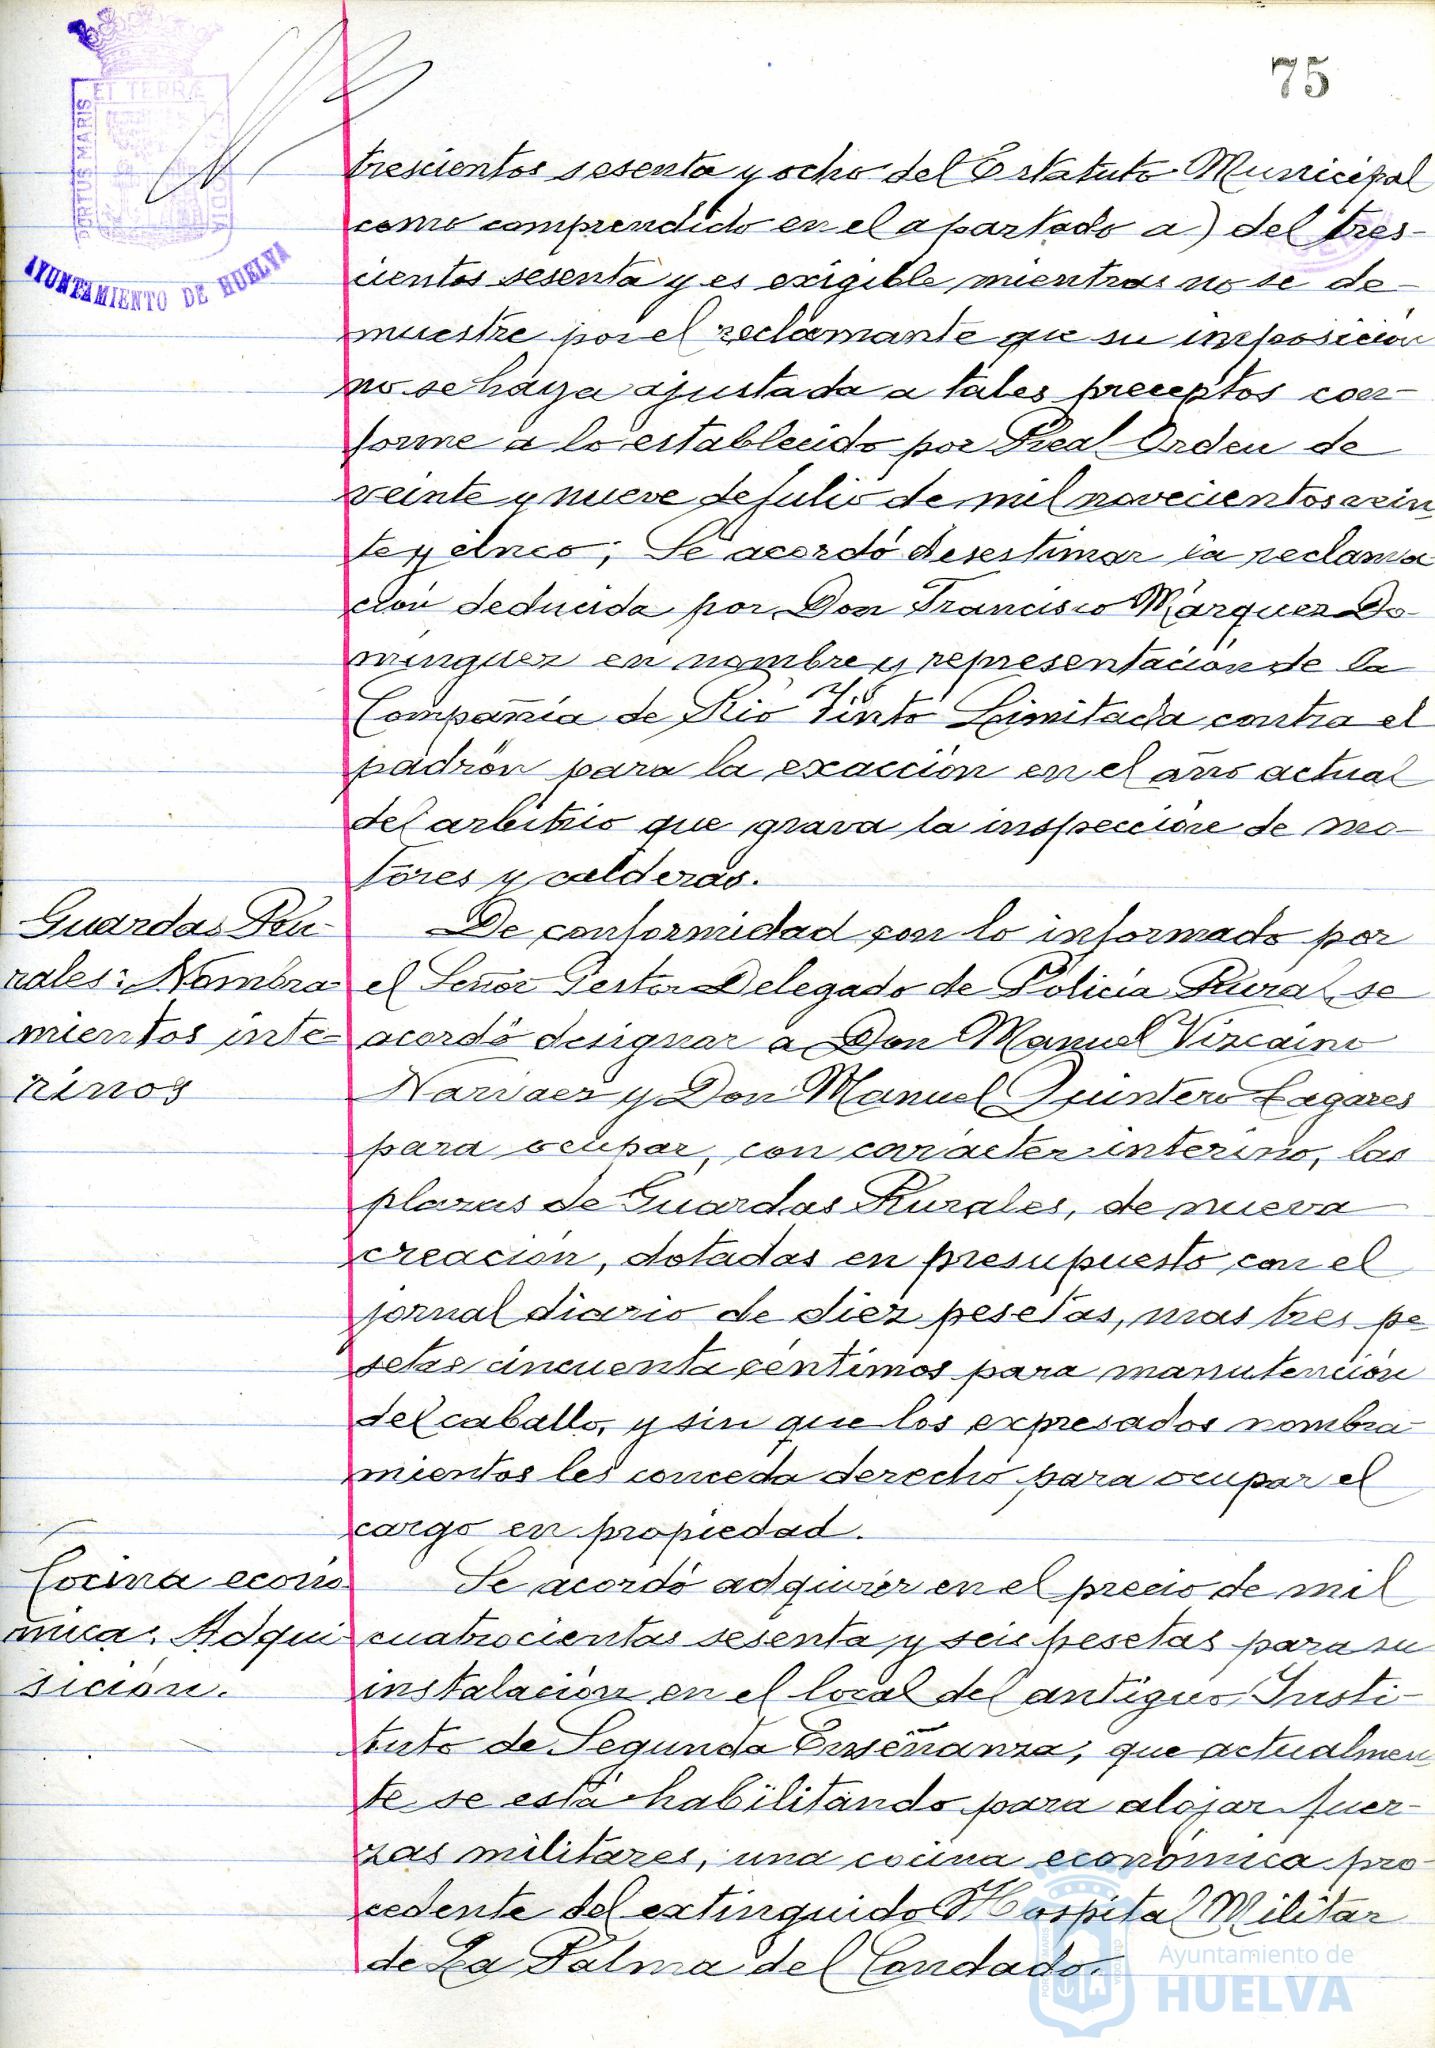 75
PORTUS MARIS
ET TERRÆ
CUSTODIA
AYUNTAMIENTO DE HUELVA
trescientos sesenta y ocho del Estatuto Municipal
como comprendido en el apartado a) del tres-
cientos sesenta y es exigible mientras no se de-
muestre por el reclamante que su imposición
no se haya ajustada a tales preceptos con-
forme a lo establecido por Real Orden de
veinte y nueve de Julio de mil novecientos vein-
te y cinco; Se acordó desestimar la reclama
ción deducida por Don Francisco Márquez Do-
minguez en nombre y representación de la
Compañía de Rio Tinto Limitada contra el
padrón para la exacción en el año actual
del arbitrio que grava la inspección de mo-
tores y calderas.
Guardas Ru-
rales: Nombra-
mientos inte-
rinos
De conformidad con lo informado por
el Señor Gestor Delegado de Policía Rural se
acordó designar a Don Manuel Vizcaino
Narvaez y Don Manuel Quintero Lagares
para ocupar, con carácter interino, las
plazas de Guardas Rurales, de nueva
creación, dotadas en presupuesto con el
jornal diario de diez pesetas, mas tres pe
setas cincuenta céntimos para manutención
del caballo, y sin que los expresados nombra-
mientos les conceda derecho para ocupar el
cargo en propiedad.
Cocina econó
mica: Adqui
sición.
Se acordó adquirir en el precio de mil
cuatrocientas sesenta y seis pesetas para su
instalación en el local del antiguo Insti-
tuto de Segunda Enseñanza, que actualmen-
te se está habilitando para alojar fuer-
zas militares, una cocina económica pro-
cedente del extinguido Hospital Militar
de La Palma del Condado.
Ayuntamiento de
HUELVA